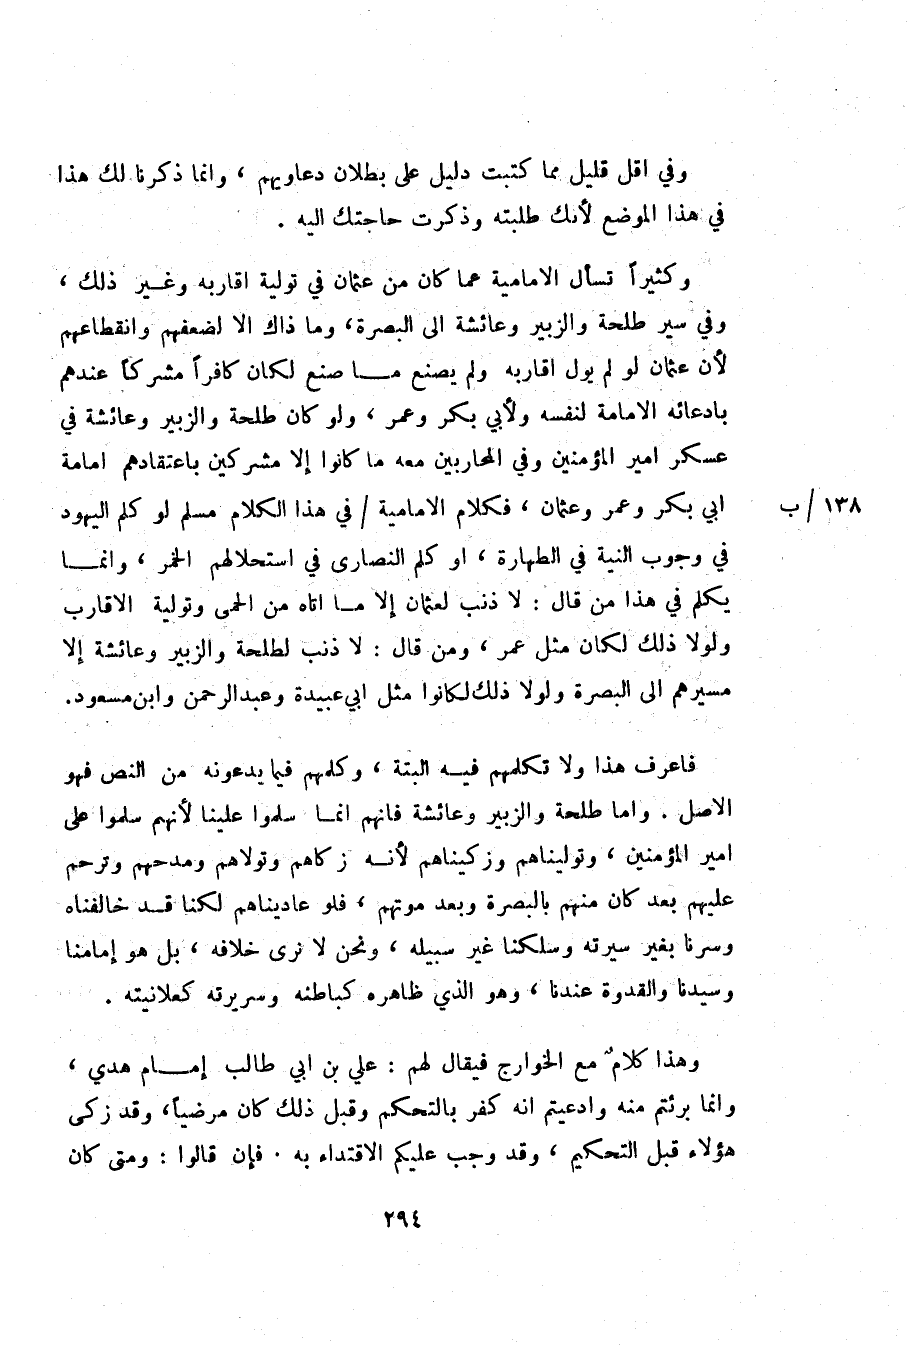 وفي اقل قليل مما كتبت دليل على بطلان دعاويهم ، وانما ذكرنا لك هذا
في هذا الموضع لأنك طلبته وذكرت حاجتك اليه .
وكثيراً تسأل الامامية عما كان من عثمان في تولية اقاربه وغـير ذلك ،
وفي سير طلحة والزبير وعائشة الى البصرة، وما ذاك الا لضعفهم وانقطاعهم
لأن عثمان لو لم يول اقاربه ولم يصنع مــا صنع لكان كافراً مشركاً عندهم
بادعائه الامامة لنفسه ولأبي بكر وعمر ، ولو كان طلحة والزبير وعائشة في
عسكر امير المؤمنين وفي المحاربين معه ما كانوا إلا مشركين باعتقادهم امامة
١٣٨ / ب ابي بكر وعمر وعثمان ، فكلام الامامية / في هذا الكلام مسلم لو كلم اليهود
في وجوب النية في الطهارة ، او كلم النصارى في استحلالهم الخمر ، وانمــا
يكلم في هذا من قال : لا ذنب لعثمان إلا مـا اتاه من الحمى وتولية الاقارب
ولولا ذلك لكان مثل عمر ، ومن قال : لا ذنب لطلحة والزبير وعائشة إلا
مسيرهم الى البصرة ولولا ذلك لكانوا مثل ابي عبيدة وعبدالرحمن وابن مسعود.
فاعرف هذا ولا تكلمهم فيـه البتة ، وكلمهم فيما يدعونه من النص فهو
الاصل . واما طلحة والزبير وعائشة فانهم انمـا سلموا علينا لأنهم سلموا على
امير المؤمنين ، وتوليناهم وزكيناهم لأنـه زكاهم وتولاهم ومدحهم وترحم
عليهم بعد كان منهم بالبصرة وبعد موتهم ، فلو عاديناهم لكنا قـد خالفناه
وسرنا بغير سيرته وسلكنا غير سبيله ، ونحن لا نرى خلافه ، بل هو إمامنا
وسيدنا والقدوة عندنا ، وهو الذي ظاهره كباطنه وسريرته كعلانيته .
وهذا كلامٌ مع الخوارج فيقال لهم : علي بن ابي طالب إمـــام هدي ،
وانما برئتم منه وادعيتم انه كفر بالتحكم وقبل ذلك كان مرضياً، وقد زكى
هؤلاء قبل التحكيم ، وقد وجب عليكم الاقتداء به . فإن قالوا : ومتى كان
٢٩٤